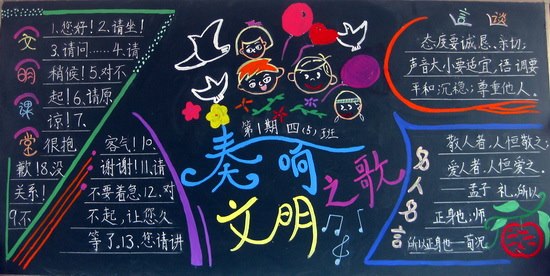 文明课堂
1.您好！2.请坐！
3.请问……4.请
稍候！5.对不
起！6.请原
谅！7.
很抱
歉！8.没
关系！
9.不
客气！10.
谢谢！11.请
不要着急.12.对
不起,让您久
等了.13.您请讲
第1期 四(5)班
奏响
文明之歌
言谈
态度要诚恳、亲切;
声音大小要适宜,语调要
平和沉稳;尊重他人。
名人名言
敬人者,人恒敬之,
爱人者,人恒爱之.
——孟子 礼,所以
正身也;师
所以正身也—荀况